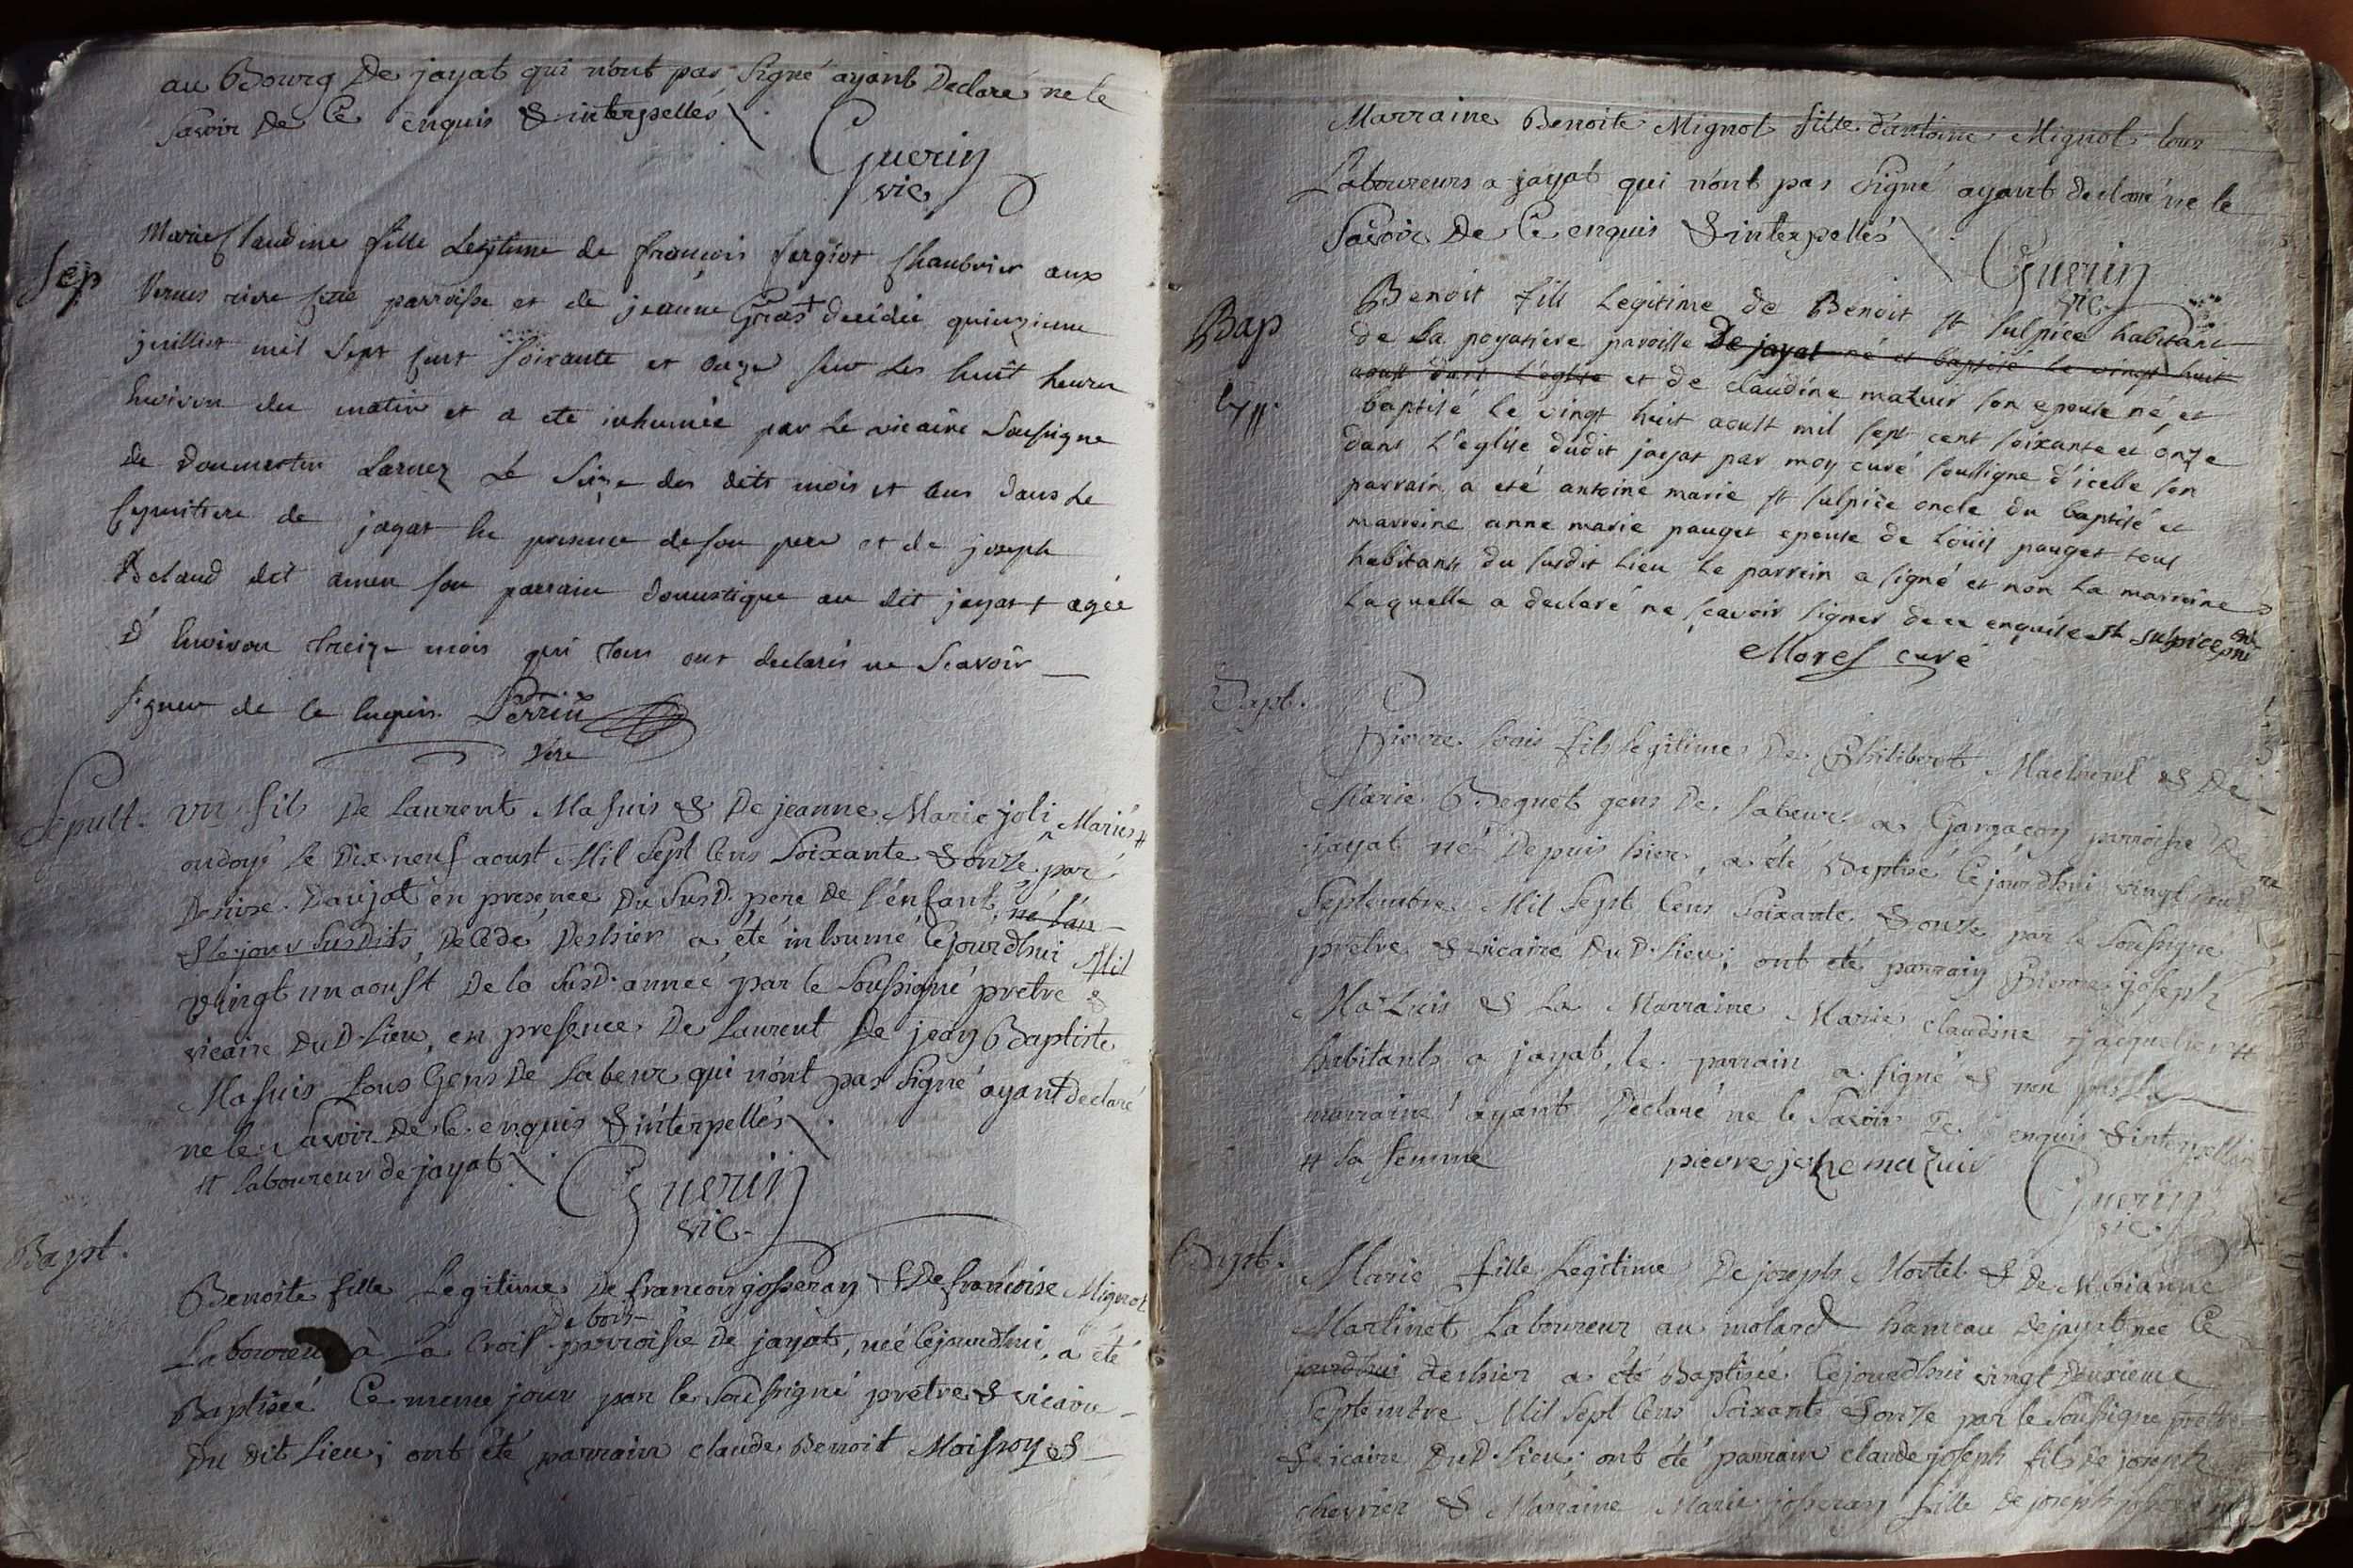 au Bourg De jayat qui n'ont pas Signé ayant Declaré ne le
savoir De Ce enquis & interpellés
Guerin
vic
Sep
Marie Claudine fille Legitime de françois fargiot Chanbrier aux
parroisse et de jeanne Gras + decédée quinzieme
juillet mil Sept Cent Soixante et onze sur Les huit heures
Environ du matin et a eté inhumée par Le vicaire Soussigné
de Le Seize des dits mois et ans dans Le
Cymitiere de jayat En presence de son pere et de joseph
dit son parrain domestique au dit jayat + agée
D'Environ treize mois qui tous ont declarés ne Scavoir
signer de Ce Enquis. Perrin
vire
Sépult. un fils De Laurent Masuis & De jeanne Marie joli Mariés #
ondoyé le Dix-neuf aoust Mil Sept Cens Soixante & onze, par
Denise Daujat en presence Du Susd. pere De l'enfant, né l'an
& le jour Susdits, Décédé Deshier a été inhumé Cejourdhui Mil
vingt un aoust De la Susd. année, par le Soussigné prêtre &
vicaire DuD. Lieu, en presence De Laurent De jean Baptiste
Masuis tous Gens De Labeur qui n'ont pas Signé ayant declaré
ne le Savoir De Ce enquis & interpellés
# laboureur de jayat
Guerin
vic.
Bapt.
Benoite fille Legitime De francois josseran & De francoise Mignot
De bois
Laboureur à La Croix parroisse De jayat, née Cejourdhui, a été
Baptisée Ce meme jour par le Soussigné prêtre & vicaire
Du dit Lieu; ont été parrain claude Benoit Moissony &
Marraine Benoite Mignot fille d'antoine Mignot tous
Laboureurs a jayat qui n'ont pas Signé ayant declaré ne le
Savoir De Ce enquis & interpellés
Guerin
vic.
Bap
Benoit fils Legitime de Benoit st sulpice habitant
de la poyatiere paroisse De jayat né et baptisé le vingt huit
aoust dans L'eglise et de claudine mazuir son epouse né, et
baptisé le vingt huit aoust mil sept cent soixante et onze
dans L'eglise dudit jayat par moy curé soussigné d'icelle son
parrain a eté antoine marie st sulpice oncle du baptisé et
marreine anne marie pauget epouse de Louis pauget tous
habitants du susdit Lieu le parrein a signé et non La marreine
Laquelle a declaré ne scavoir signer de ce enquise st sulpice
Morel curé
Bapt.
Pierre Louis fils legitime De Philibert Machurel & De
Marie Beguet gens De Labeur a Gargaçon parroisse De
jayat né Depuis hier, a été Baptisé Cejourdhui vingt
Septembre Mil Sept Cens Soixante & onze par le Soussigné
prêtre & vicaire DuD. Lieu; ont été parrain Pierre joseph
Mazuis & La Marraine Marie claudine jacquelien #
habitants a jayat, le parrain a signé & non pas la
marraine ayant Declaré ne le Savoir De enquis & interpellée
# sa femme
pierre jophe mazuir
Guerin
vic.
Bapt.
Marie fille Legitime De joseph Mortel & De Marianne
Martinet Laboureur au molard hameau De jayat née Ce
jourdhui deshier a été Baptisée Cejourdhui vingt Deuxieme
Septembre Mil Sept Cens Soixante & onze par le Soussigné prêtre
& vicaire DuD. Lieu; ont été parrain claude joseph fils De joseph
chevrier & Marraine Marie josseran fille De joseph josseran